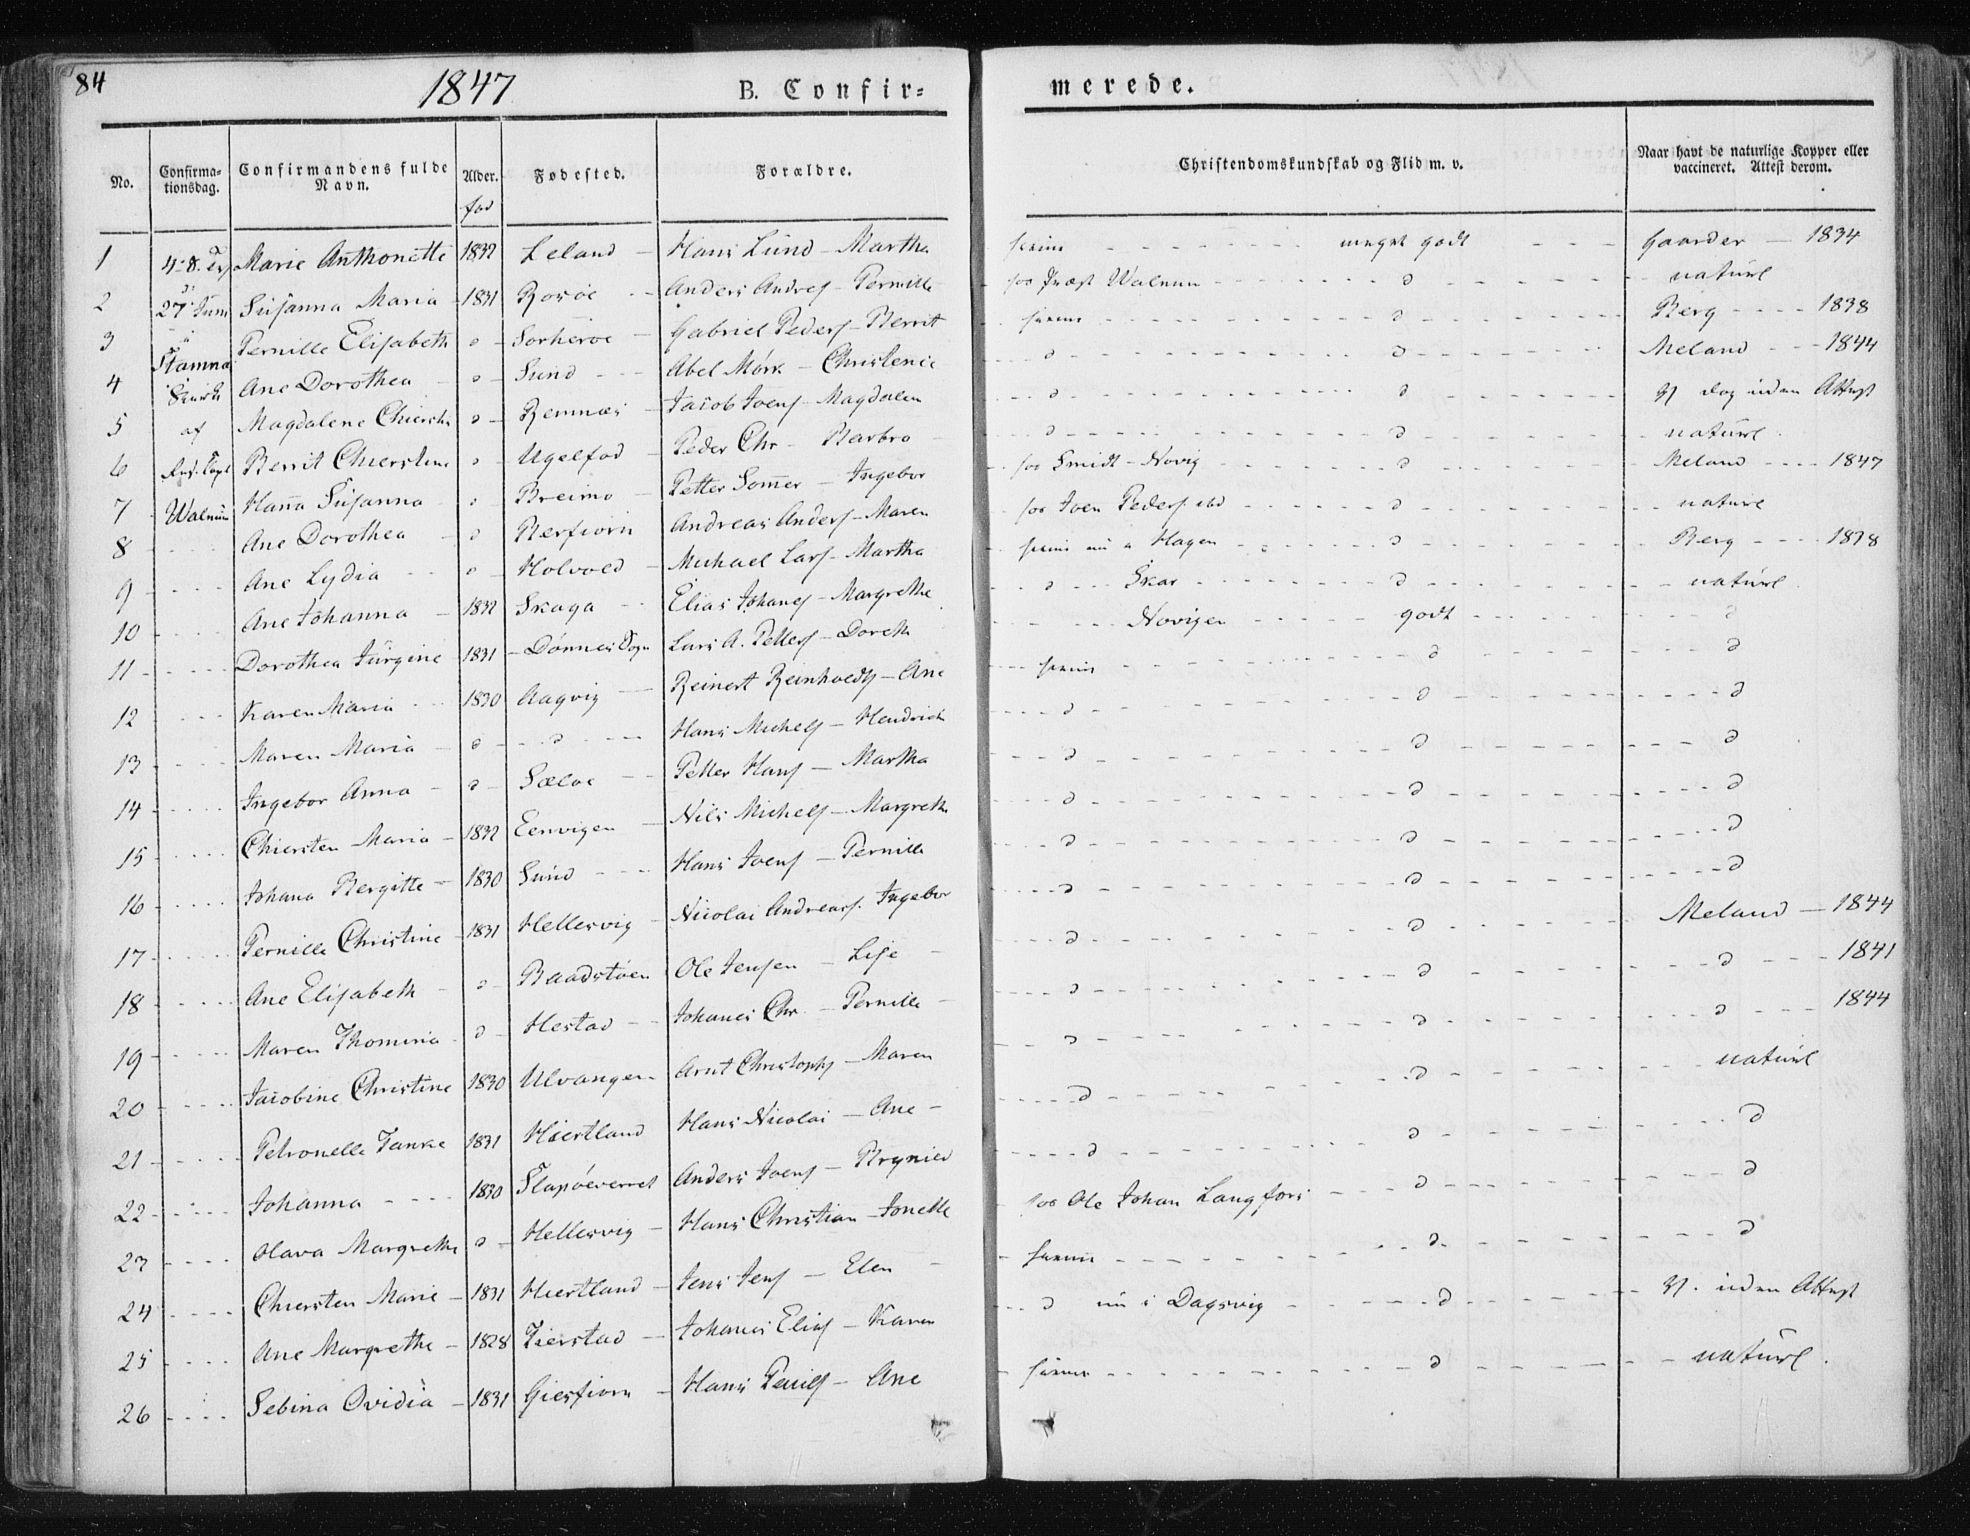 84
1847
B. Confir=
merede.
No.
Confirma=
tionsdag.
Confirmandens fulde
Navn.
Alder.
Fødested.
Forældre.
Christendomskundskab og Flid m. v.
Naar havt de naturlige Kopper eller
vaccineret. Attest derom.
1 Marie Anthonette 1832 Leland Hans Lund - Martha meget godt Gaarder 1834
2 27 Juni Susanna Maria 1831 Rosøe Anders Anders - Pernille Præst Walnum d natúrl
3 Pernille Elisabeth d Sorherøe Gabriel Peders - Berrit d Berg 1838
Stamnæs
4 Ane Dorothea d Sund Abel Mørk - Christence d d Meland 1844
5 af Magdalene Chierst d Remnæs Jacob Joens - Magdalen d d uden Attest
6 Berrit Chierstine d Ugelfod Peder Chr - Barbro d d natúrl
7 Walnúm Hana Susanna d Breimo Petter Somer - Ingebor hos Smidt - Novig d Meland 1847
8 Ane Dorothea d Andreas Anders - Maren hos Joen Peders d naturl
9 Ane Lydia d Holvoed Michael Lars - Martha Hagen d Berg 1838
10 Ane Johanna 1832 Skaga Elias Johanes - Margrethe d Skar d natúrl
11 Dorothea Jürgine 1831 Dønnes Sogn Lars A. Petters - Doreth Novigen godt d
12 Karen Maria 1830 Aagvig Reinert Reinholdts - Ane d d
13 Maren Maria d d Hans Michels - Hendrich d d d
14 Ingebor Anna d Sæløe Petter Hans - Martha d d d
15 Chiersten Maria 1832 Eenvigen Nils Michels - Margreth d d d
16 Johana Bergitte 1830 Sund Hans Joens - Pernille d d d
17 Pernille Christine 1831 Hellesvig Nicolai Andreas. Ingebor d d d
18 Ane Elisabeth d Baadstøen Ole Jensen - Lise d d Meland 1844
19 Maren Thomina d Hestad Johanes Chr. - Pernille d d d 1841
20 Jacobine Christine 1830 Ulvangen Arnt Christophs - Maren d d d 1844
21 Petronelle Tanke 1831 Hiertland Hans Nicolai - Ane d d natúrl
22 Johanna 1830 Slapøeverret Anders Joens - Brynild d d d
23 Olava Margrethe d Hellesvig Hans Christian - Jonette hos Ole Johan Langfors d d
24 Chiersten Marie 1831 Hiertland Jens Jens - Elen d d
25 Ane Margrethe 1828 Tierstad Johanes Elias - Karen d nu i Dagsvig d uden Attest
26 Sebina Ovidia 1831 Giesfiorn Hans - Ane d natúrl.